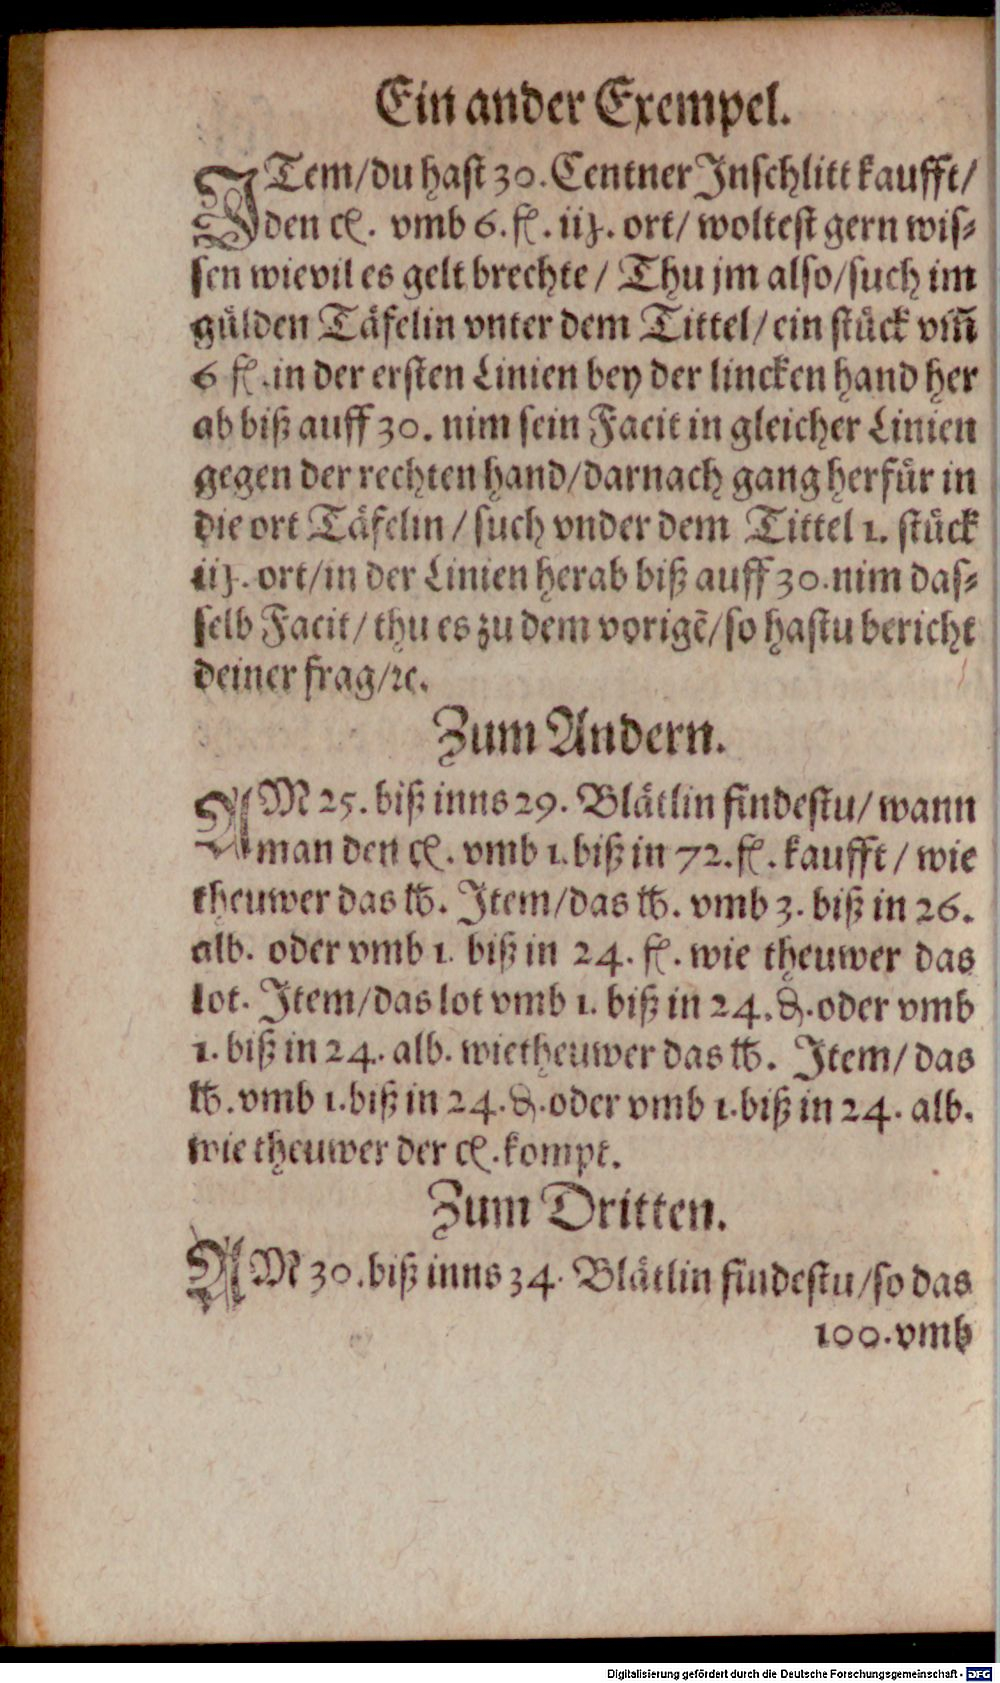 Ein ander Exempel.
ITem/du hast 30. Centner Inschlitt kaufft/
den cł. vmb 6. fl. iiȷ. ort/ woltest gern wis⸗
sen wievil es gelt brechte / Thu jm also/such im
gülden Täfelin vnter dem Tittel/ein stück vm̃
6 fl. in der ersten Linien bey der lincken hand her
ab biß auff 30. nim sein Facit in gleicher Linien
gegen der rechten hand/darnach gang herfür in
die ort Täfelin / such vnder dem Tittel 1. stück
iiȷ. ort/in der Linien herab biß auff 30. nim das⸗
selb Facit/ thu es zu dem vorigẽ/so hastu bericht
deiner frag/ꝛc.
Zum Andern.
AM 25. biß inns 29. Blätlin findestu/ wann
man den cł. vmb 1. biß in 72. fl. kaufft / wie
theuwer das ℔. Item/das ℔. vmb 3. biß in 26.
alb. oder vmb 1. biß in 24. fl. wie theuwer das
lot. Item/das lot vmb 1. biß in 24. ₰. oder vmb
1. biß in 24. alb. wie theuwer das ℔. Item/ das
℔. vmb 1. biß in 24. ₰. oder vmb 1. biß in 24. alb.
wie theuwer der cł. kompt.
Zum Dritten.
AM 30. biß inns 34. Blätlin findestu/so das
100. vmb
Digitalisierung gefördert durch die Deutsche Forschungsgemeinschaft - DFG